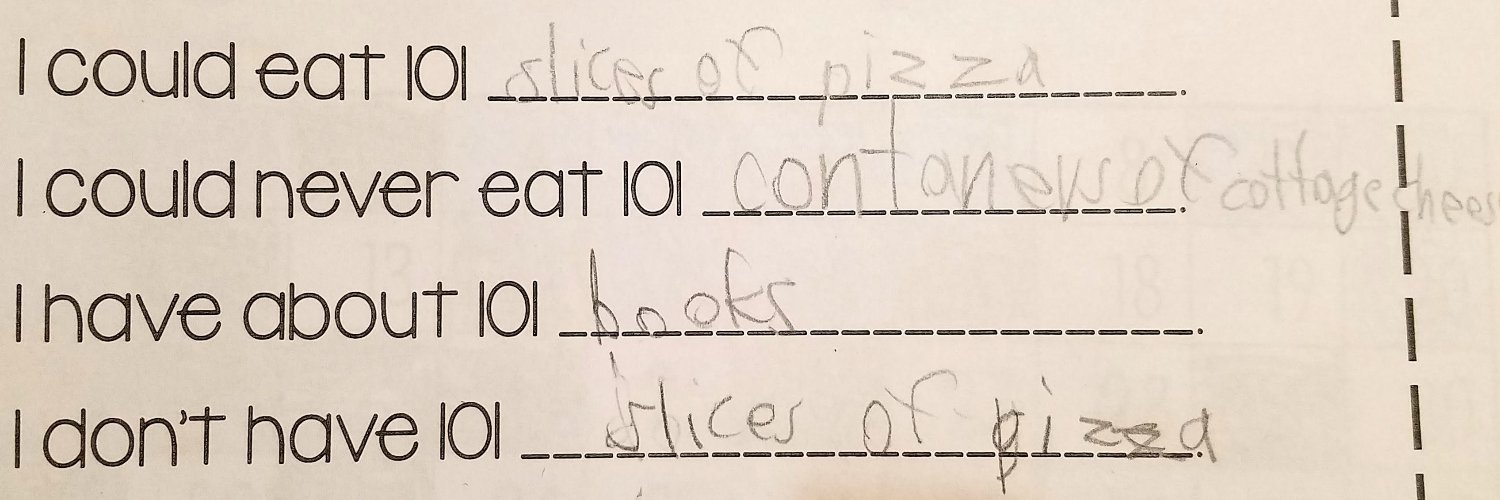 I could eat 101 slices of pizza.
I could never eat 101 contaners of cottage chees
I have about 101 books.
I don't have 101 slices of pizza.